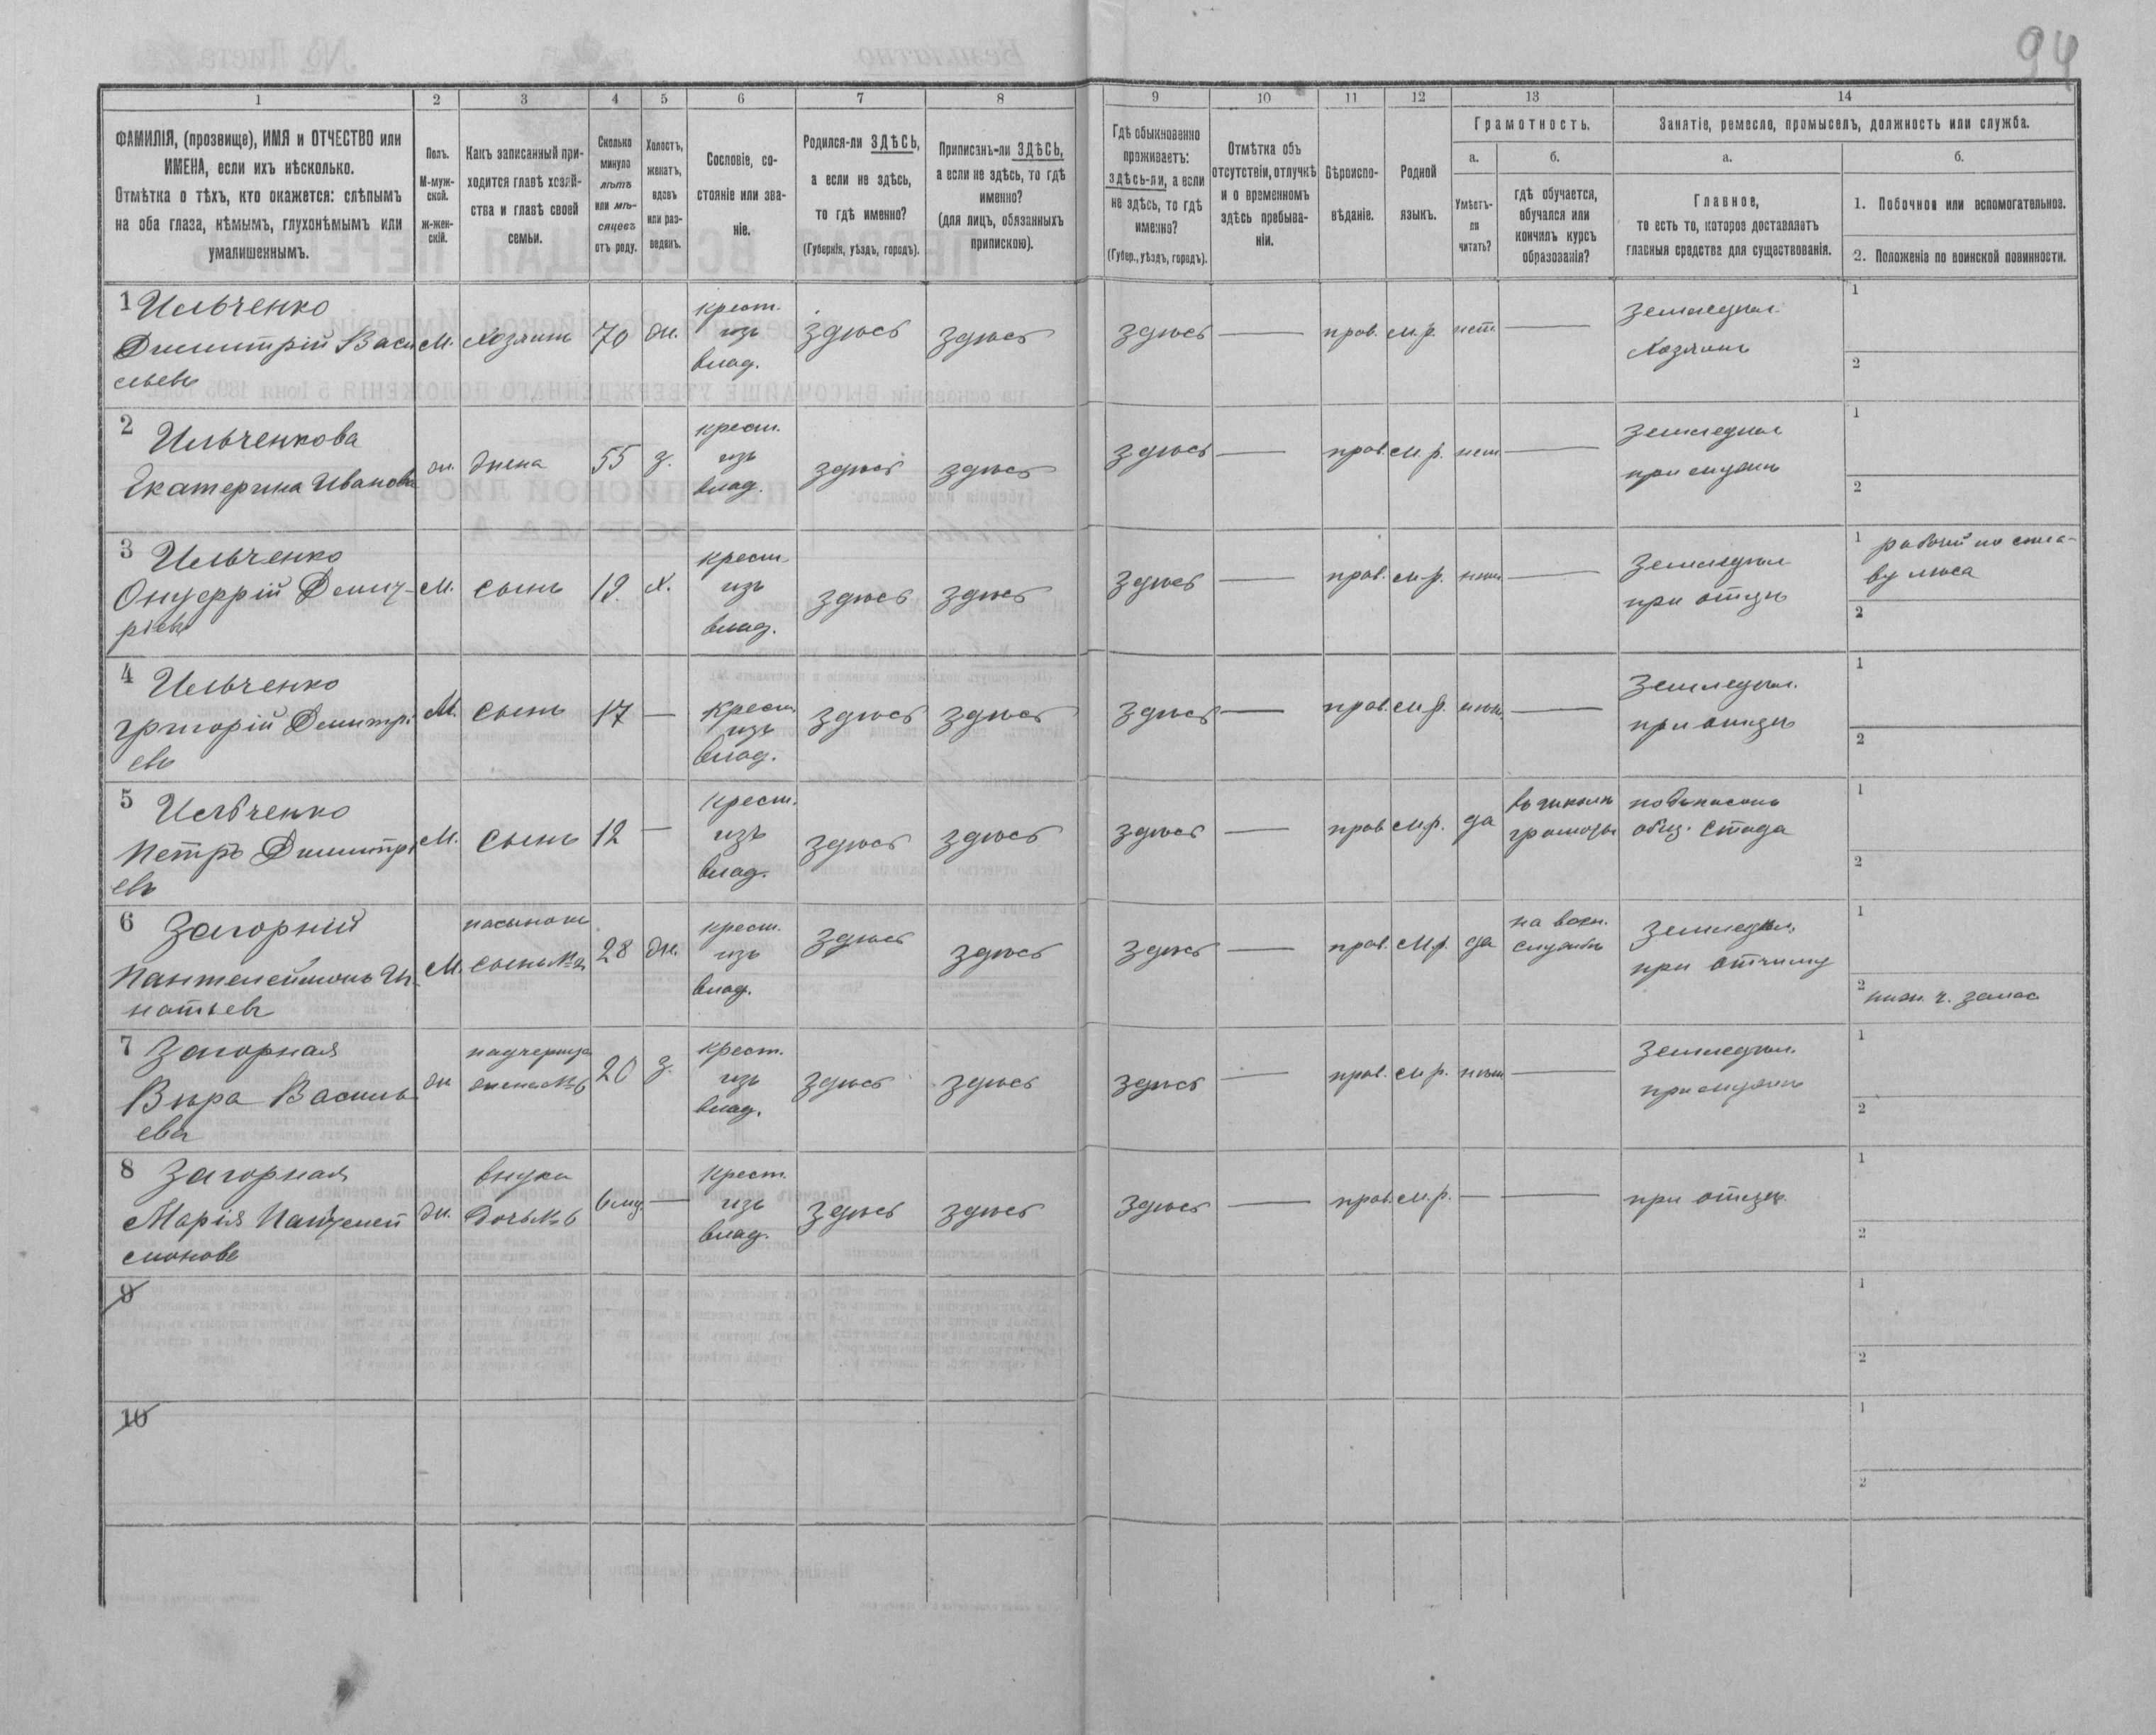 94
1 2 3 4 5 6 7 8 9 10 11 12 13 14
ФАМИЛІЯ, (прозвище), ИМЯ и ОТЧЕСТВО или
ИМЕНА, если ихъ нѣсколько.
Отмѣтка о тѣхъ, кто окажется: слѣпымъ
на оба глаза, нѣмымъ, глухонѣмымъ или
умалишеннымъ.
Полъ.
М-муж-
ской.
ж-жен-
скій.
Какъ записанный при-
ходится главѣ хозяй-
ства и главѣ своей
семьи.
Сколько
минуло
лѣтъ
или мѣ-
сяцевъ
отъ роду.
Холостъ,
женатъ,
вдовъ
или раз-
веденъ.
Сословіе, со-
стояніе или зва-
ніе.
Родился-ли ЗДѢСЬ,
а если не здѣсь,
то гдѣ именно?
(Губернія, уѣздъ, городъ).
Приписанъ-ли ЗДѢСЬ,
а если не здѣсь, то гдѣ
именно?
(для лицъ, обязанныхъ
припискою).
Гдѣ обыкновенно
проживаетъ:
здѣсь-ли, а если
не здѣсь, то гдѣ
именно?
(Губер., уѣздъ, городъ).
Отмѣтка объ
отсутствіи, отлучкѣ
и о временномъ
здѣсь пребыва-
ніи.
Вѣроиспо-
вѣданіе.
Родной
языкъ.
Грамотность.
а.
Умѣетъ-
ли
читать?
б.
гдѣ обучается,
обучался или
кончилъ курсъ
образованія?
Занятіе, ремесло, промыселъ, должность или служба.
а.
Главное,
то есть то, которое доставляетъ
главныя средства для существованія.
б.
1. Побочное или вспомогательное.
2. Положеніе по воинской повинности.
1 Ильченко
Димитрій Васи
льевъ
М. Хозяинъ 70 ж.
крест.
изъ
влад.
здѣсь здѣсь здѣсь — прав. м.р. нет —
Земледѣл.
Хозяинъ
1
2
2 Ильченкова
Екатерина Иванова
ж. жена 55 з.
крест.
изъ
влад.
здѣсь здѣсь здѣсь — прав. м.р. нет —
Земледѣл
при мужѣ
1
2
3 Ильченко
М. сынъ 19 х.
крест.
изъ
влад.
здѣсь здѣсь здѣсь — прав. м.р. нѣт —
Земледѣл
при отцѣ
1 рабочій по спла-
ву лѣса
2
4 Ильченко
Григорій Демитрі
евъ
М. сынъ 17 —
крест.
изъ
влад.
здѣсь здѣсь здѣсь — прав. м.р. нѣт. —
Земледѣл.
при отцѣ
1
2
5 Ильченко
Петръ Димитрі
евъ
М. сынъ 12 —
крест.
изъ
влад.
здѣсь здѣсь здѣсь — прав. м.р. да
въ школѣ
грамоты
подпасокъ
общ. стада
1
2
6 Загорній
Пантелеймонъ Иг
натьевъ
М.
пасынокъ
сынъ №2
28 ж.
крест.
изъ
влад.
здѣсь здѣсь здѣсь — прав. м.р. да
на воен.
службѣ
Земледѣл.
при отчиму
1
2 нижн. ч. запас
7 Загорная
Вѣра Василь
ева
ж
падчерица
жена №6
20 з.
крест.
изъ
влад.
здѣсь здѣсь здѣсь — прав. м.р. нѣт —
Земледѣл.
при мужѣ
1
2
8 Загорная
Марія Пантелей
монова
ж.
внука
дочь №6
6 мѣ. —
крест.
изъ
влад.
здѣсь здѣсь здѣсь — прав. м.р. — —
при отцѣ
1
2
9
1
2
10
1
2